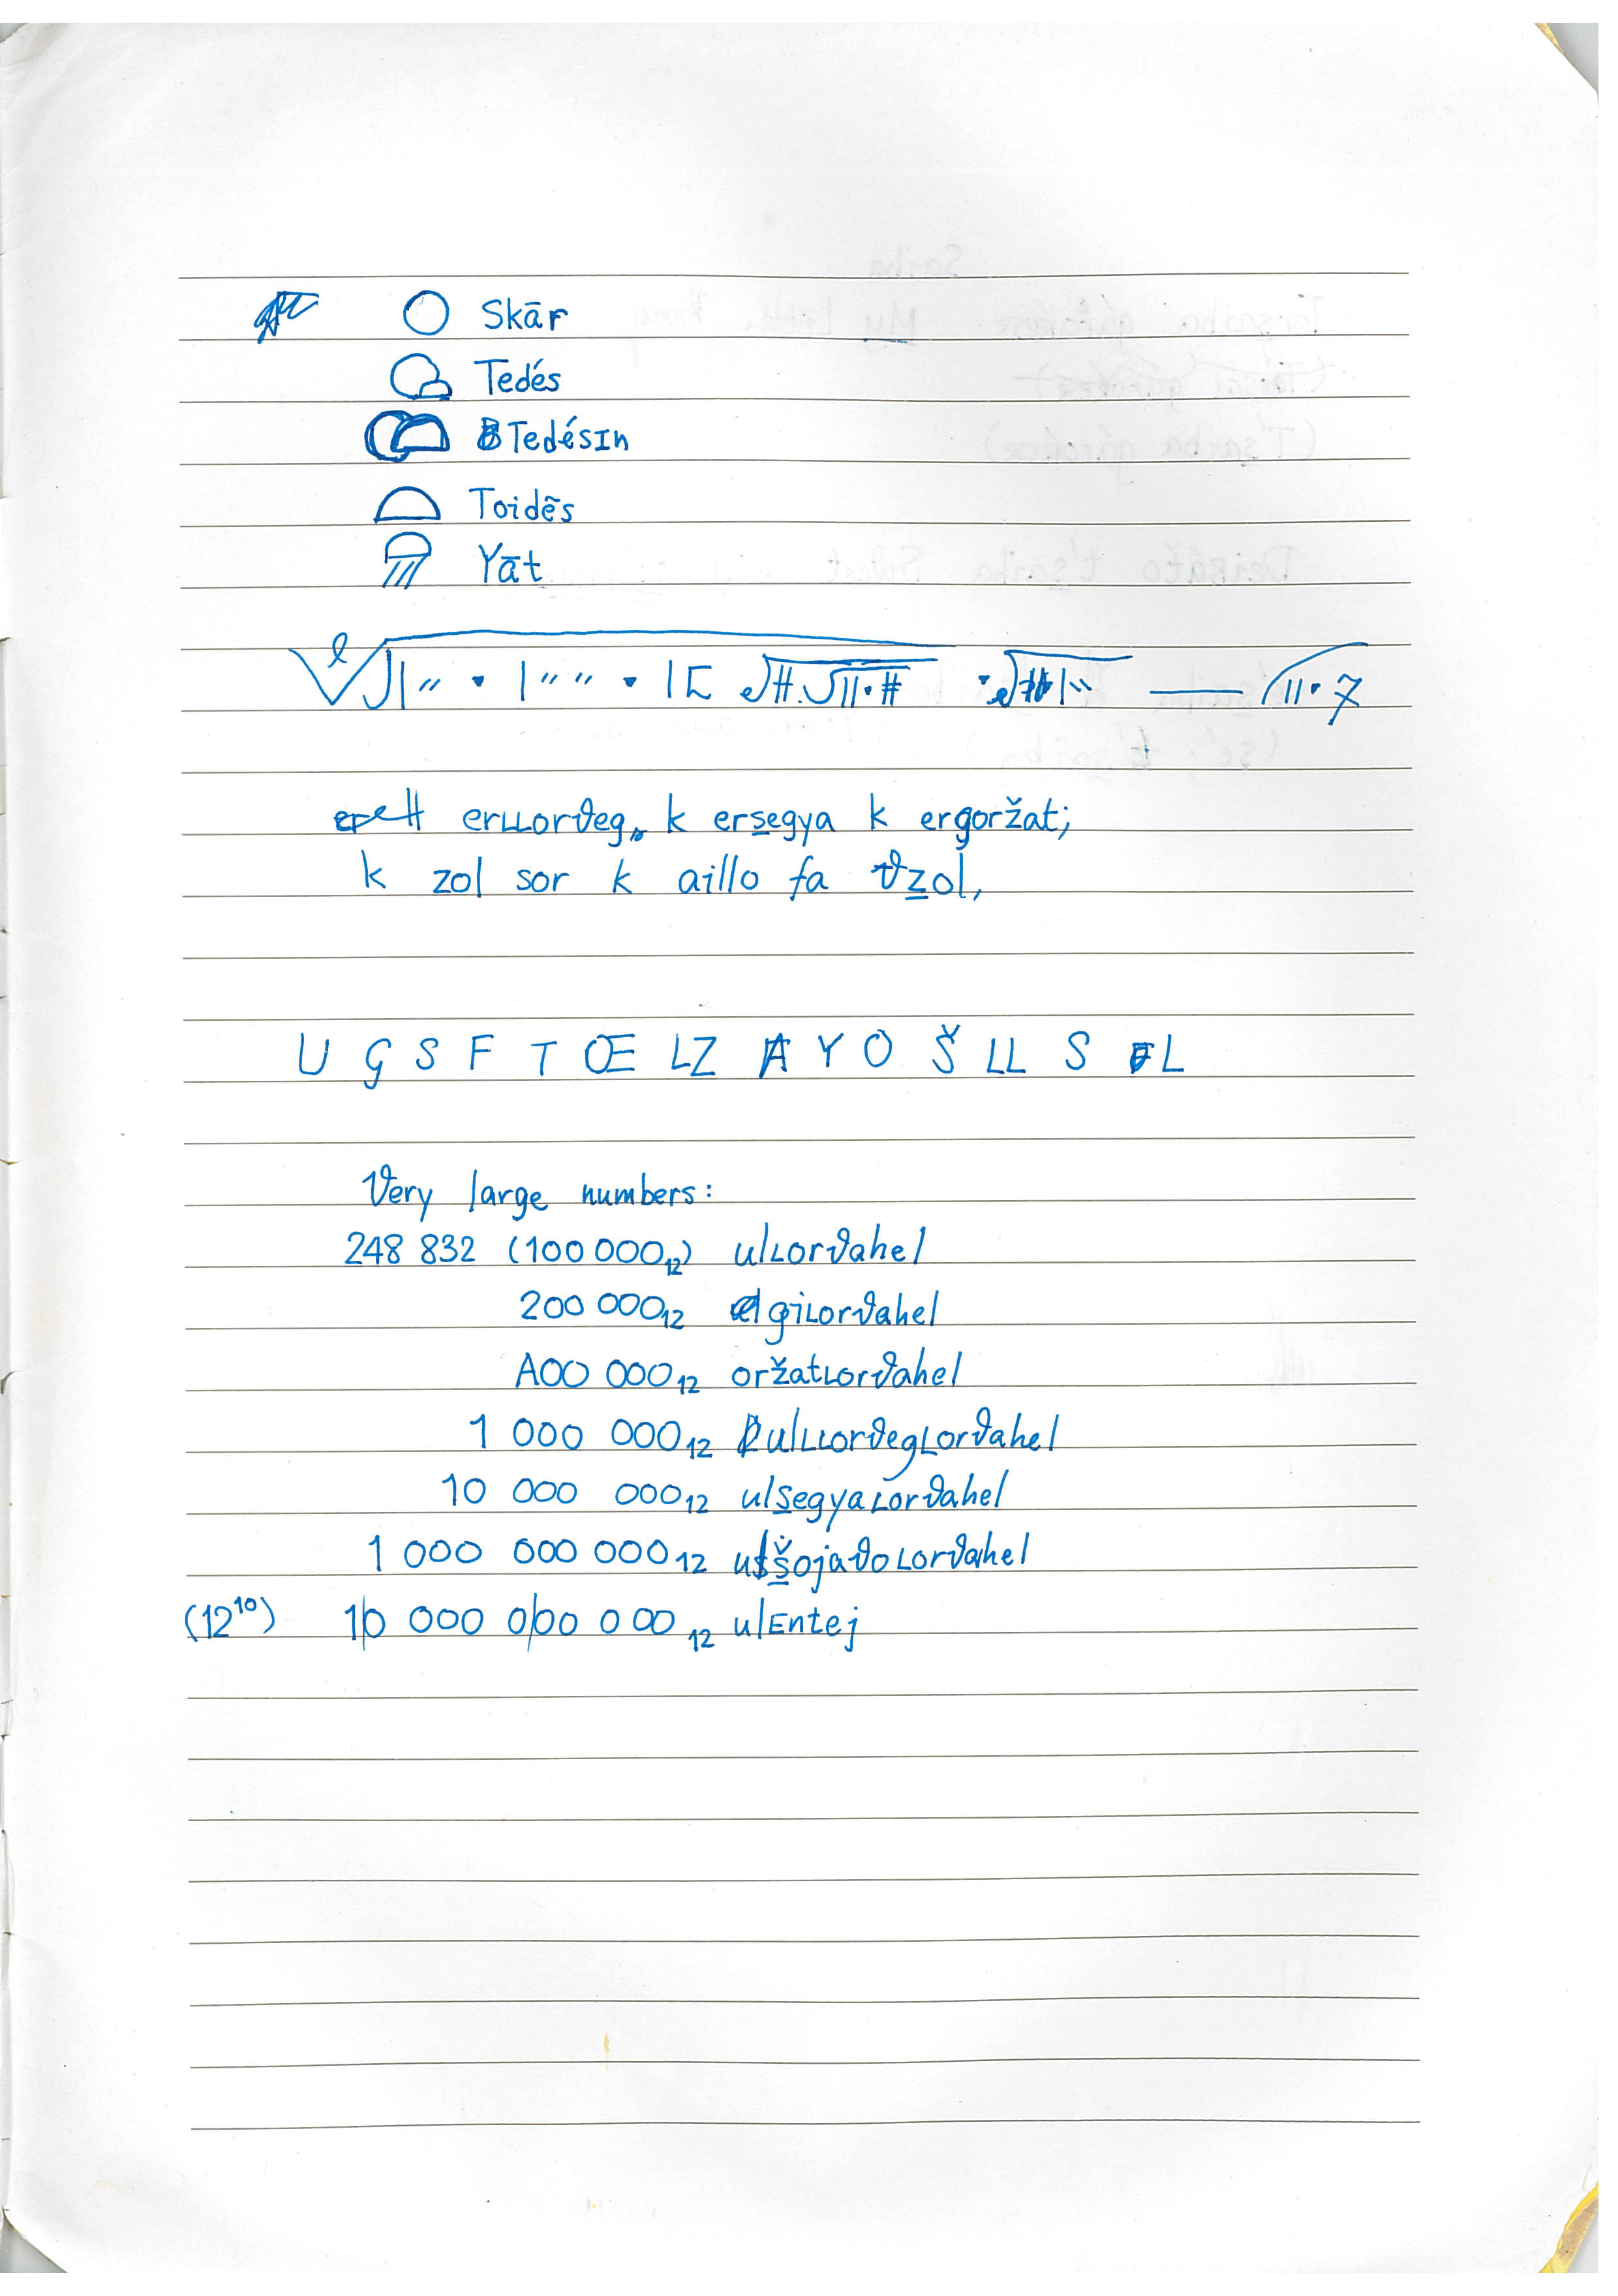 Skār
Tedés
Tedésın
Toidēs
Yāt
erLLorϑeg, k ers̲egya k ergoržat;
k zol sor k aillo fa ϑz̲ol,
U G S F T Œ LZ A Y O Š LL S L
Very large numbers:
248 832 (100 000₁₂) ulLorϑahel
200 000₁₂ giLorϑahel
A00 000₁₂ oržatLorϑahel
1 000 000₁₂ ulLLorϑegLorϑahel
10 000 000₁₂ uls̲egyaLorϑahel
1 000 000 000₁₂ uš̲ojaϑoLorϑahel
(12¹⁰) 10 000 000 000₁₂ ulEntej